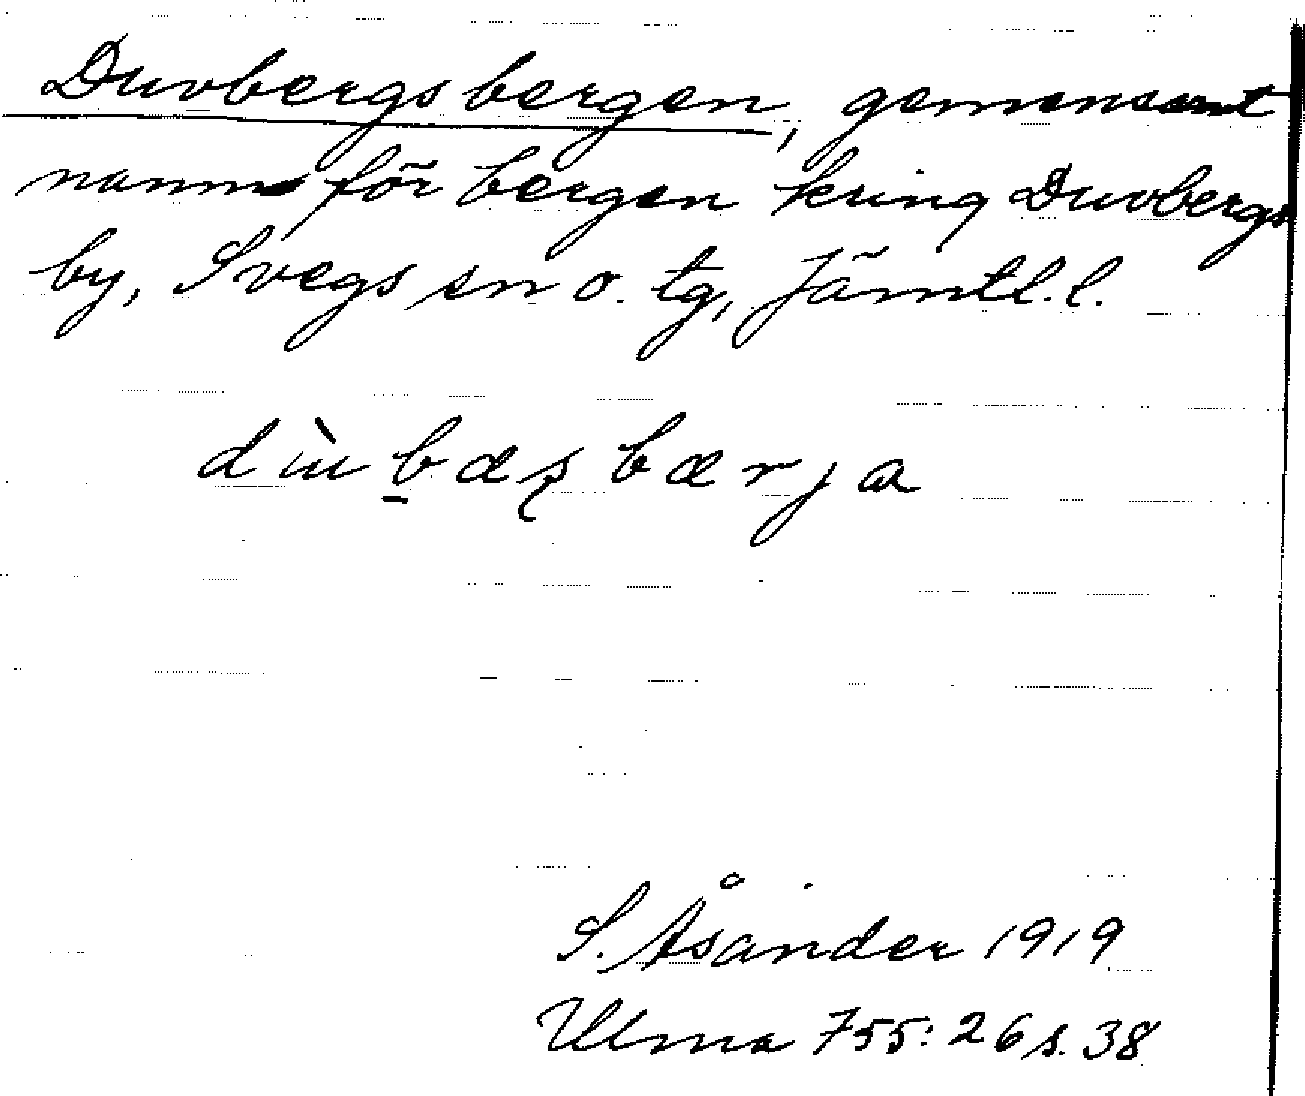 Duvbergsbergen, gemensamt
namn för bergen kring Duvbergs
by, Svegs sn o. tg, Jämtl. l.
dùu b̠æʂbærja
S. Åsander 1919
Ulma 755:26 s. 38